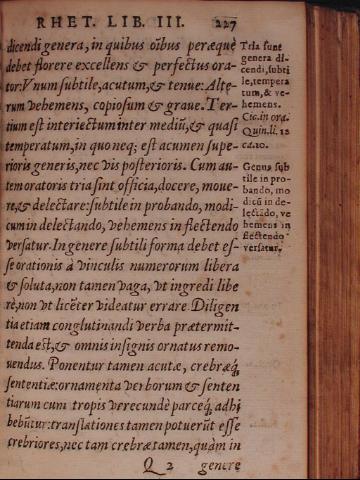 RHET. LIB. III. 227
dicendi genera, in quibus oĩbus peræquè
debet florere excellens & perfectus ora-
tor: Vnum subtile, acutum, & tenue: Alte-
rum vehemens, copiosum & graue. Ter-
tium est interiectum inter mediũ, & quasi
temperatum, in quo neq; est acumen supe-
rioris generis, nec vis posterioris. Cum au-
tem oratoris tria sint officia, docere, moue-
re, & delectare: subtile in probando, modi-
cum in delectando, vehemens in flectendo
versatur. In genere subtili forma debet es-
se orationis à vinculis numerorum libera
& soluta, non tamen vaga, vt ingredi libe
rè, non vt licẽter videatur errare. Diligen
tia etiam conglutinandi verba prætermit-
tenda est, & omnis insignis ornatus remo-
uendus. Ponentur tamen acutæ, crebræq;
sententiæ: ornamenta verborum & senten
tiarum cum tropis verecundè parceq; adhi
bebũtur: translationes tamen poterũt esse
crebriores, nec tam crebræ tamen, quàm in
Q 2 genere
Tria sunt
genera di-
cendi, subti
le, tempera
tum, & ve-
hemens.
Cic. in ora.
Quin. li. 12
ca. 10.
Genus sub
tile in pro-
bando, mo
dicũ in de-
lectãdo, ve
hemens in
flectendo
versatur.